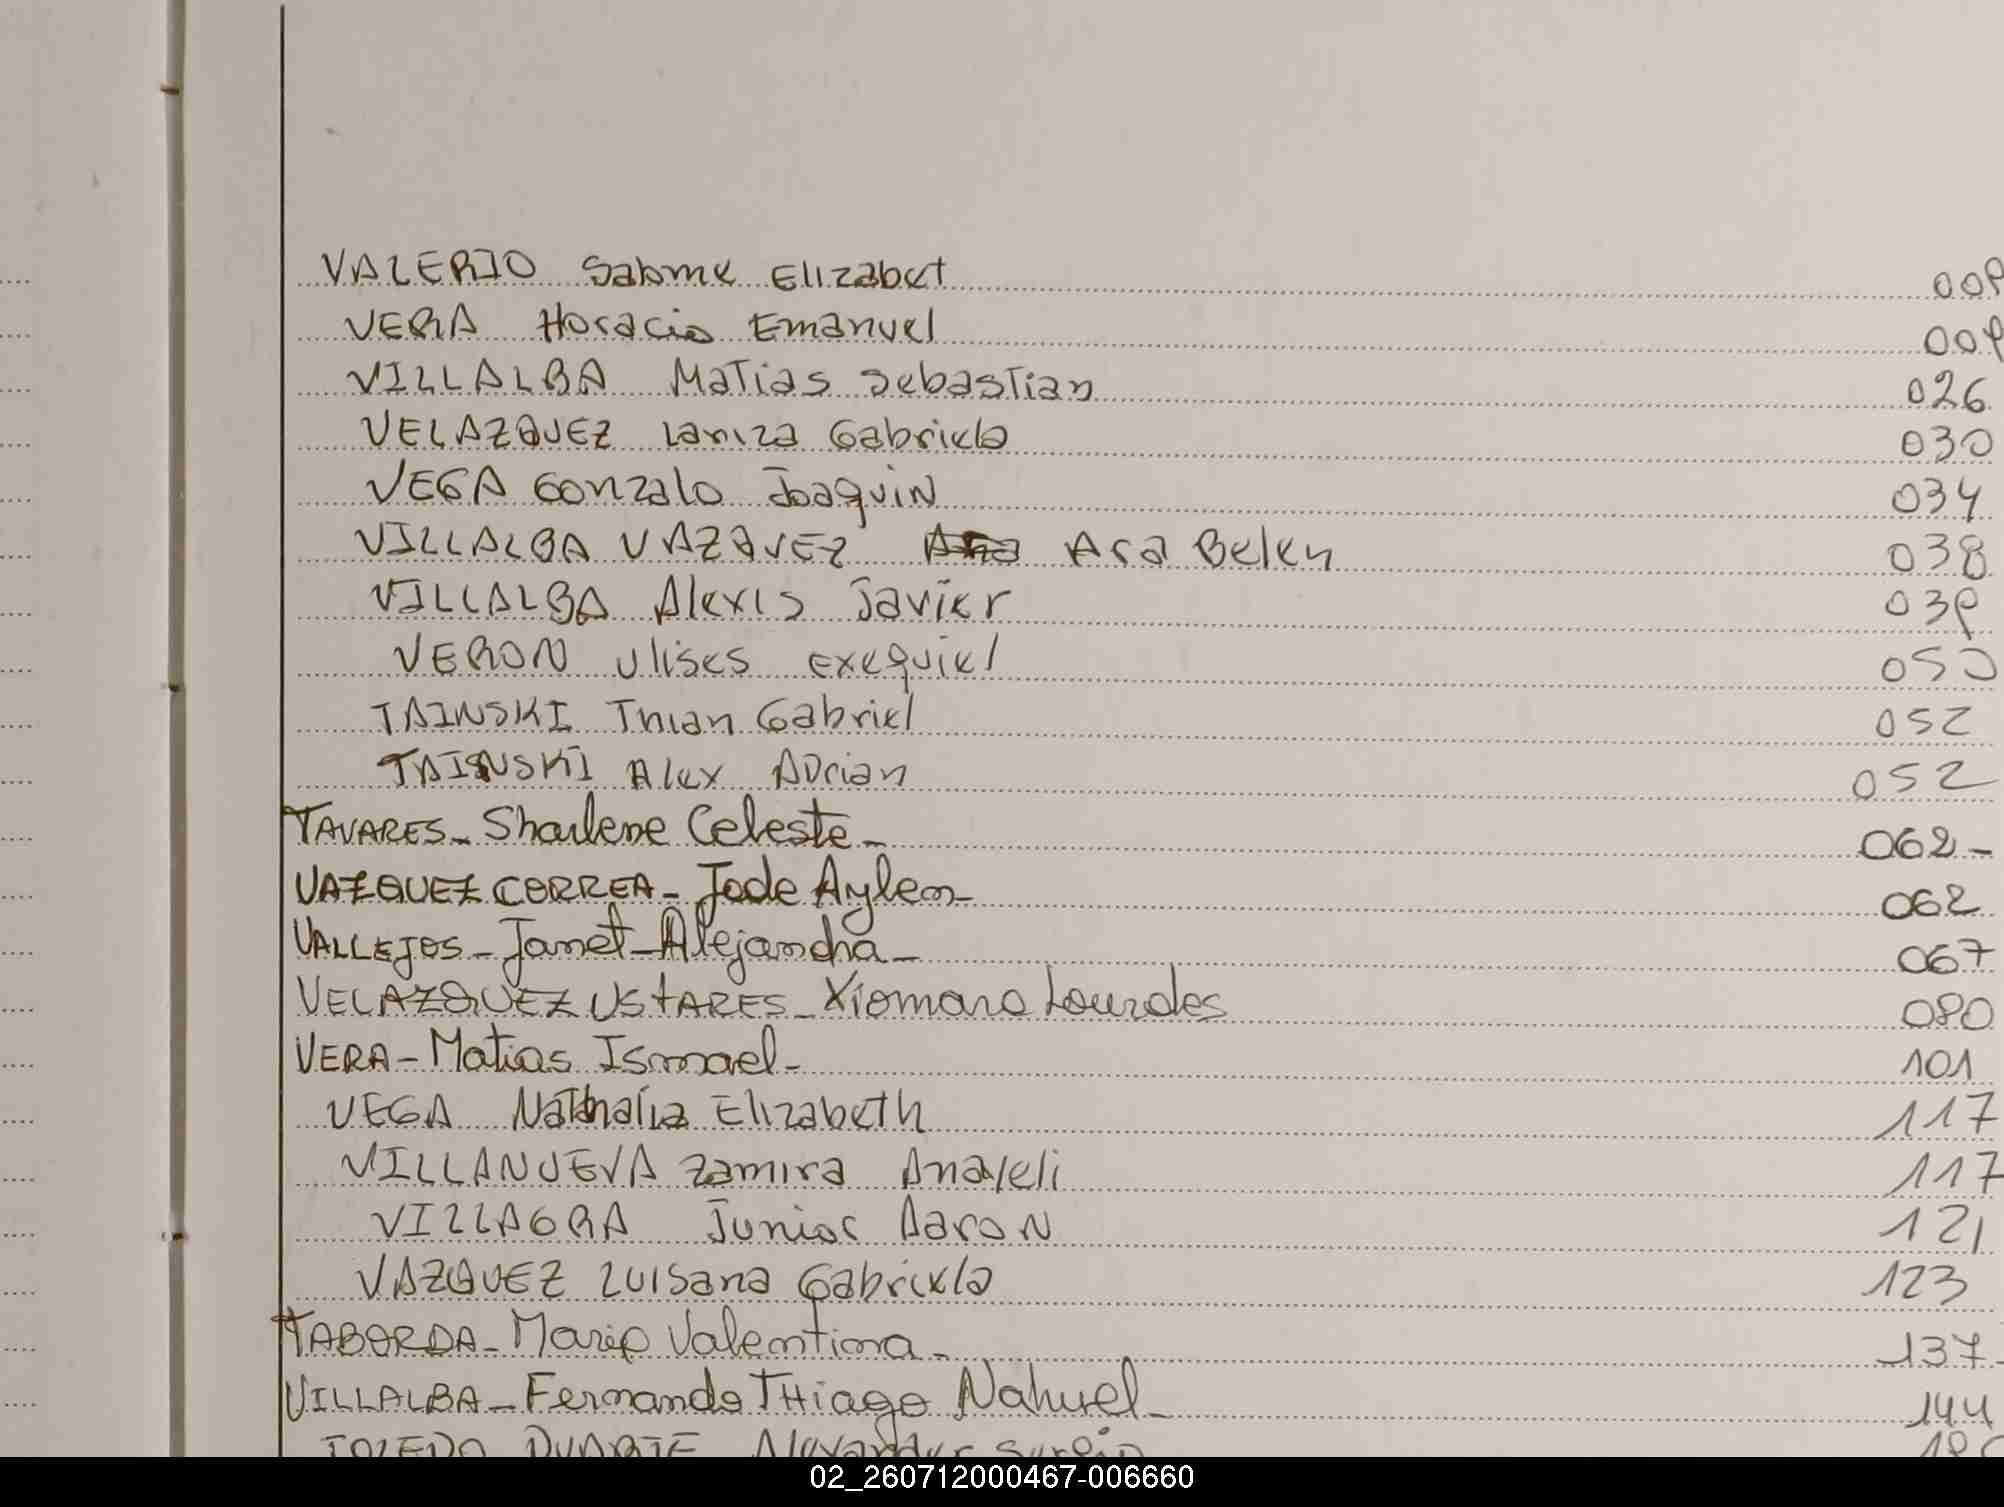 VALERIO Salome Elizabet 009
VERA Horacio Emanuel 009
VILLALBA Matias Sebastian 026
VELAZQUEZ Lariza Gabriela 030
VEGA Gonzalo Joaquin 034
VILLALBA VAZQUEZ Ara Belen 038
VILLALBA Alexis Javier 039
VERON Ulises exequiel 050
TAINSKI Thian Gabriel 052
TAINSKI Alex Adrian 052
TAVARES - Sharlene Celeste - 062 -
VAZQUEZ CORREA - Jade Aylen - 062
VALLEJOS - Janet - Alejandra - 067
VELAZQUEZ USTARES - Xiomara Lourdes 080
VERA - Matias Ismael - 101
VEGA Nathalia Elizabeth 117
VILLANUEVA Zamira Anayeli 117
VILLAGRA Junior Aaron 121
VAZQUEZ Luisana Gabriela 123
TABORDA - Valentina - 137
VILLALBA - Fernando THiago Nahuel - 144
TOLEDO DUARTE Alexander Sergio
02_260712000467-006660